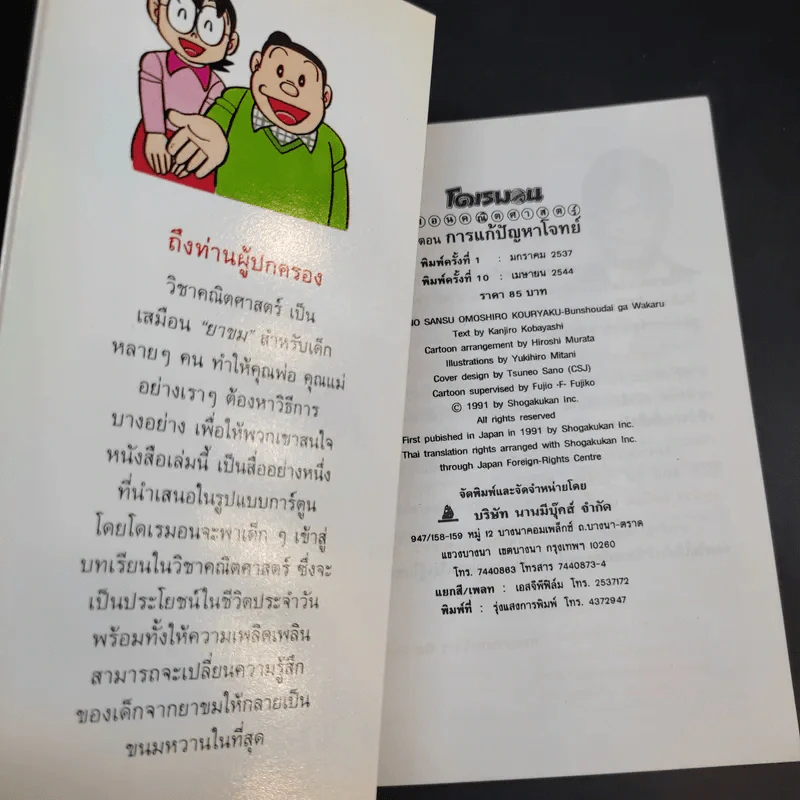 ถึงท่านผู้ปกครอง
วิชาคณิตศาสตร์ เป็น
เสมือน "ยาขม" สำหรับเด็ก
หลายๆ คน ทำให้คุณพ่อ คุณแม่
อย่างเราๆ ต้องหาวิธีการ
บางอย่าง เพื่อให้พวกเขาสนใจ
หนังสือเล่มนี้ เป็นสื่ออย่างหนึ่ง
ที่นำเสนอในรูปแบบการ์ตูน
โดยโดเรมอนจะพาเด็ก ๆ เข้าสู่
บทเรียนในวิชาคณิตศาสตร์ ซึ่งจะ
เป็นประโยชน์ในชีวิตประจำวัน
พร้อมทั้งให้ความเพลิดเพลิน
สามารถจะเปลี่ยนความรู้สึก
ของเด็กจากยาขมให้กลายเป็น
ขนมหวานในที่สุด
โดเรมอน
อนคณิตศาสตร์
ตอน การแก้ปัญหาโจทย์
พิมพ์ครั้งที่ 1 : มกราคม 2537
พิมพ์ครั้งที่ 10 : เมษายน 2544
ราคา 85 บาท
NO SANSU OMOSHIRO KOURYAKU-Bunshoudai ga Wakaru
Text by Kanjiro Kobayashi
Cartoon arrangement by Hiroshi Murata
Illustrations by Yukihiro Mitani
Cover design by Tsuneo Sano (CSJ)
Cartoon supervised by Fujio ·F· Fujiko
© 1991 by Shogakukan Inc.
All rights reserved
First pubished in Japan in 1991 by Shogakukan Inc.
Thai translation rights arranged with Shogakukan Inc.
through Japan Foreign-Rights Centre
จัดพิมพ์และจัดจำหน่ายโดย
บริษัท นานมีบุ๊คส์ จำกัด
947/158-159 หมู่ 12 บางนาคอมเพล็กซ์ ถ.บางนา-ตราด
แขวงบางนา เขตบางนา กรุงเทพฯ 10260
โทร. 7440863 โทรสาร 7440873-4
แยกสี/เพลท : เอสจีพีฟิล์ม โทร. 2537172
พิมพ์ที่ : รุ่งแสงการพิมพ์ โทร. 4372947